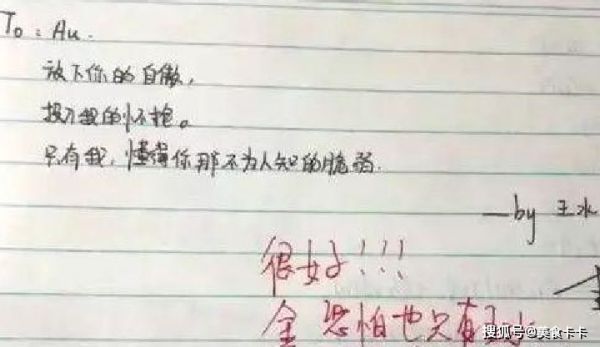 To: Au.
放下你的自傲,
投入我的怀抱。
只有我,懂得你那不为人知的脆弱.
—by 王水
很好!!!
金 恐怕也只有
搜狐号@美食卡卡